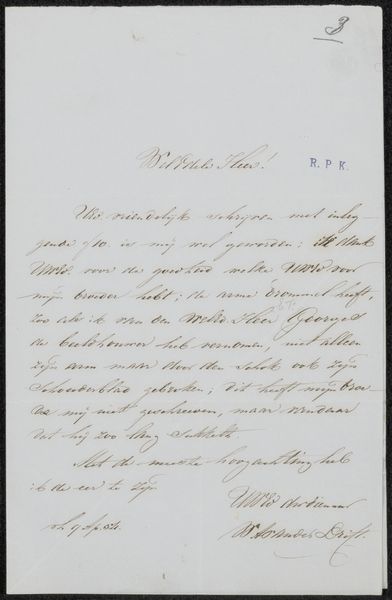 3
WelEdele Heer!
R. P. K.
Uw vriendelijk schrijven met inlig-
gende f10 is mij wel geworden; ik dank
UWEd voor de goedheid welke UWEd voor
mijn broeder hebt; de arme drommel heeft,
zoo als ik van den WelEd Heer Georges
de beeldhouwer heb vernomen, niet alleen
zijn arm maar door den schok ook zijn
schouderblad gebroken; dit heeft mijn broe-
der mij niet geschreven, maar vandaar
dat hij zoo lang sukkelt.
Met de meeste hoogachting heb
ik de eer te zijn
UWEd dw dienaar
9 Sp. 54. W A van der Drift.